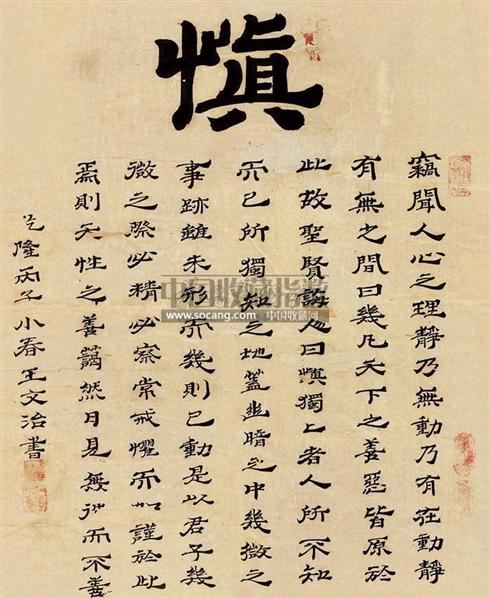 慎
竊聞人心之理靜乃無動乃有在動靜
有無之間曰幾凡天下之善惡皆原於
此故聖賢誨人曰慎獨〻者人所不知
而己所獨知之地蓋幽暗之中幾微之
事跡雖未形而幾則已動是以君子幾
微之際必精必察常戒懼而加謹於此
焉則天性之善藹然日見無往而不善
乾隆丙子小春王文治書
中国收藏指数
www.socang.com 中国收藏网